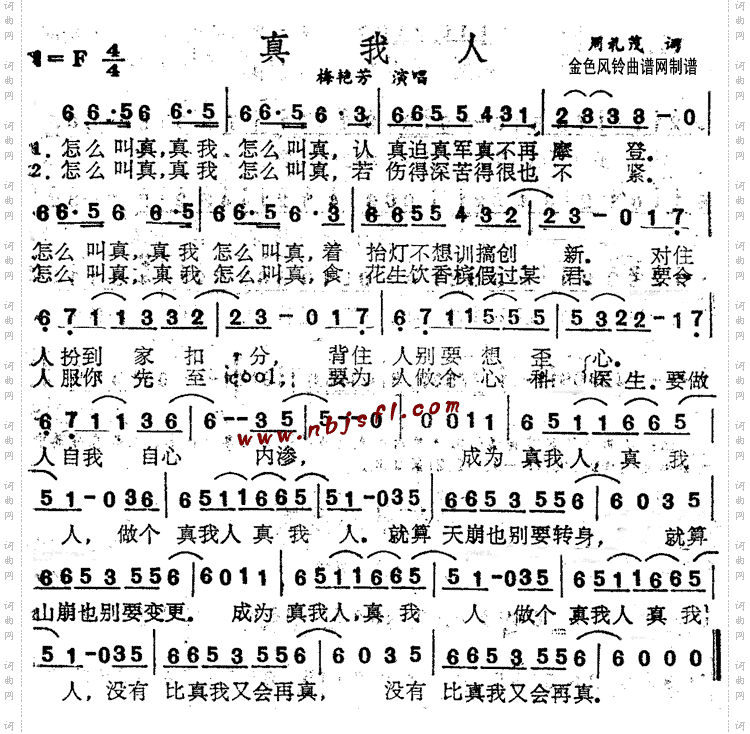 真 我 人
周礼茂 词
1=F 4/4
金色风铃曲谱网制谱
梅艳芳 演唱
6 6 6·5 6 6·5 | 6 6·5 6 6·3 | 6 6 5 5 4 3 1 | 2 3 3 3 - 0
1. 怎么 叫真,真我 怎么叫真,认 真迫真军真不再 摩 登.
2. 怎么 叫真,真我 怎么叫真,若 伤得深苦得很也 不 紧.
6 6·5 6 6·5 | 6 6·5 6 6·3 | 6 6 5 5 4 3 2 | 2 3 - 0 1 7
怎么 叫真,真我 怎么叫真,着 抬灯不想训搞创 新. 对住
怎么 叫真,真我 怎么叫真,食 花生饮香槟假过某 君. 要令
6 7 1 1 3 3 2 | 2 3 - 0 1 7 | 6 7 1 1 5 5 5 | 5 3 2 2 - 1 7
人扮到 家 扣 分, 背住 人别要 想 歪 心.
人服你 先 至 cool, 要为 人做个 心 科 医生.要做
6 7 1 1 3 6 | 6 - - 3 5 | 5 - - 0 | 0 0 1 1 | 6 5 1 1 6 6 5
www.nbjsfl.com
人自我 自心 内渗, 成为 真我人,真 我
5 1 - 0 3 6 | 6 5 1 1 6 6 5 | 5 1 - 0 3 5 | 6 6 5 3 5 5 6 | 6 0 3 5
人, 做个 真我人 真 我 人. 就算 天崩也别要转身, 就算
6 6 5 3 5 5 6 | 6 0 1 1 | 6 5 1 1 6 6 5 | 5 1 - 0 3 5 | 6 5 1 1 6 6 5
山崩也别要变更. 成为 真我人,真 我 人 做个 真我人 真我
5 1 - 0 3 5 | 6 6 5 3 5 5 6 | 6 0 3 5 | 6 6 5 3 5 5 6 | 6 0 0 0
人, 没有 比真我又会再真, 没有 比真我又会再真.
词曲网